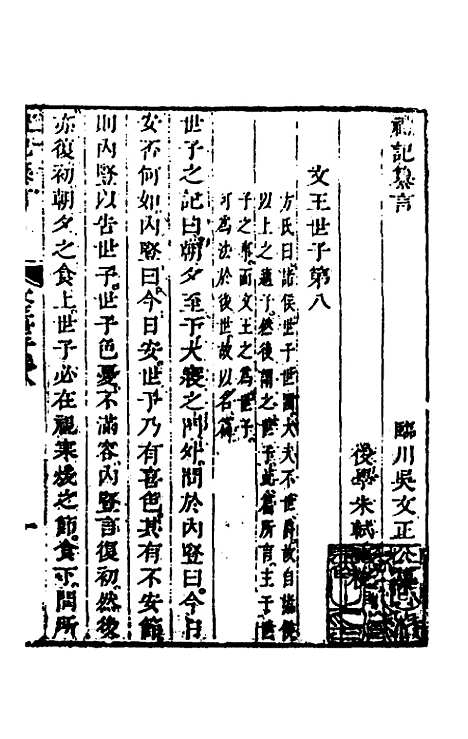 禮記纂言
臨川吳文正公
後學朱軾
文王世子第八
方氏曰諸侯世子世國大夫不世爵故自諸侯
以上之適子然後謂之世子此篇所言主于世
子之事而文王之為世子
可為法於後世故以名篇
世子之記曰朝夕至于大寢之門外問於內豎曰今日
安否何如內豎曰今日安世子乃有喜色其有不安節
則內豎以告世子世子色憂不滿容內豎言復初然後
亦復初朝夕之食上世子必在視寒煖之節食下問所